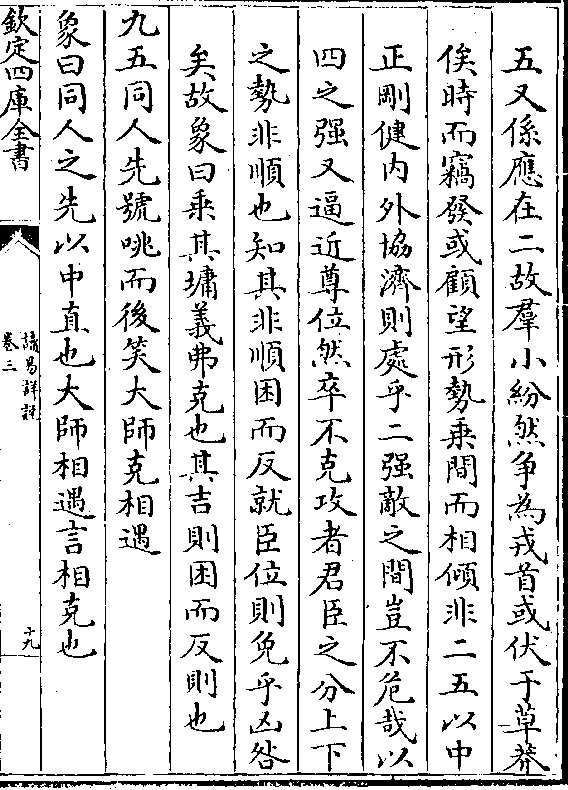 五又係應在二故羣小紛然争為戎首或伏于草莽
俟時而竊發或顧望形勢乗間而相傾非二五以中
正剛健内外協濟則處乎二强敵之間豈不危哉以
四之强又逼近尊位然卒不克攻者君臣之分上下
之勢非順也知其非順困而反就臣位則免乎凶咎
矣故象曰乗其墉義弗克也其吉則困而反則也
九五同人先號咷而後笑大師克相遇
象曰同人之先以中直也大師相遇言相克也
欽定四庫全書
讀易詳說
卷三
十九